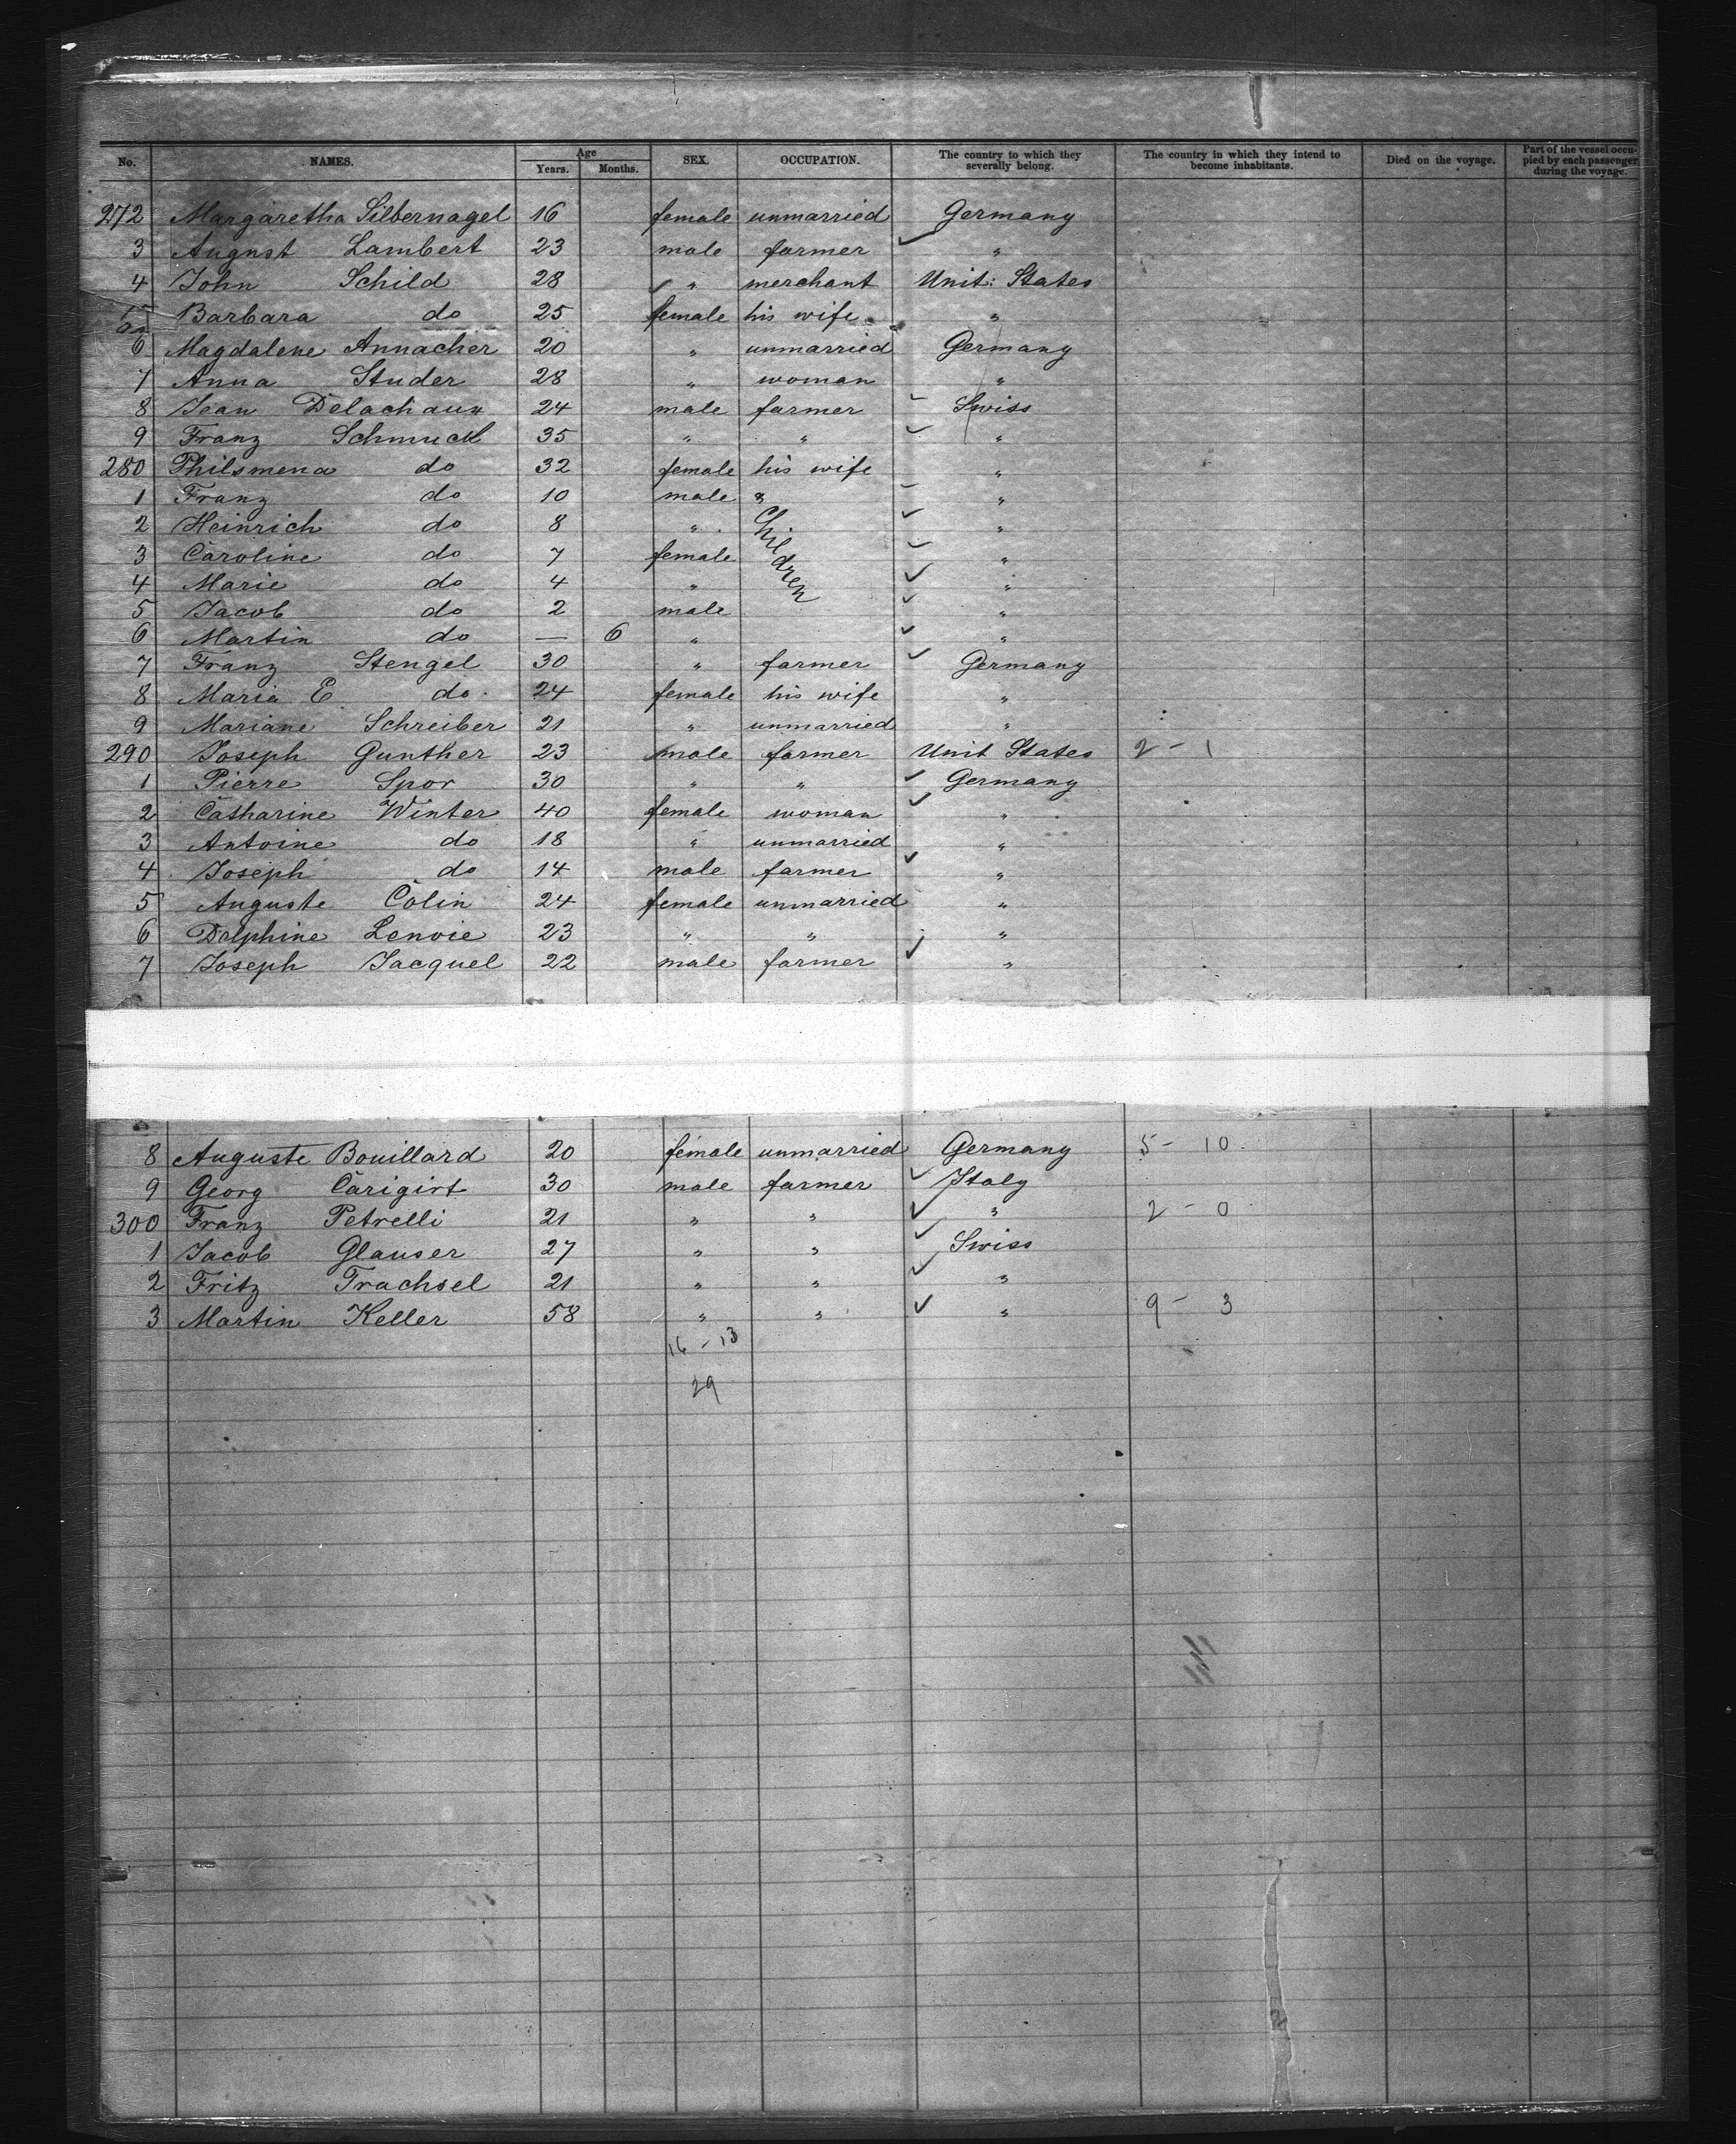 No. NAMES. Age Years. Months. SEX. OCCUPATION. The country to which they severally belong. The country in which they intend to become inhabitants. Died on the voyage. Part of the vessel occupied by each passenger during the voyage.
272 Margaretha Silbernagel 16 female unmarried Germany
3 August Lambert 23 male farmer "
4 John Schild 28 " merchant Unit: States
5 Barbara do 25 female his wife "
6 Magdalene Annacher 20 " unmarried Germany
7 Anna Studer 28 " woman "
8 Jean Delachaux 24 male farmer Swiss
9 Franz Schmuck 35 " " "
280 Philomena do 32 female his wife "
1 Franz do 10 male "
2 Heinrich do 8 " Children "
3 Caroline do 7 female "
4 Marie do 4 " "
5 Jacob do 2 male "
6 Martin do — 6 " "
7 Franz Stengel 30 " farmer Germany
8 Maria E do 24 female his wife "
9 Mariane Schreiber 21 " unmarried "
290 Joseph Gunther 23 male farmer Unit States 2 - 1
1 Pierre Spor 30 " " Germany
2 Catharine Winter 40 female woman "
3 Antoine do 18 " unmarried "
4 Joseph do 14 male farmer "
5 Auguste Colin 24 female unmarried "
6 Delphine Lenoie 23 " " "
7 Joseph Jacquel 22 male farmer "
8 Auguste Bouillard 20 female unmarried Germany 5 - 10
9 Georg Carigirt 30 male farmer Italy
300 Franz Petrelli 21 " " " 2 - 0
1 Jacob Glauser 27 " " Swiss
2 Fritz Trachsel 21 " " "
3 Martin Keller 58 " " " 9 - 3
16 - 13
29